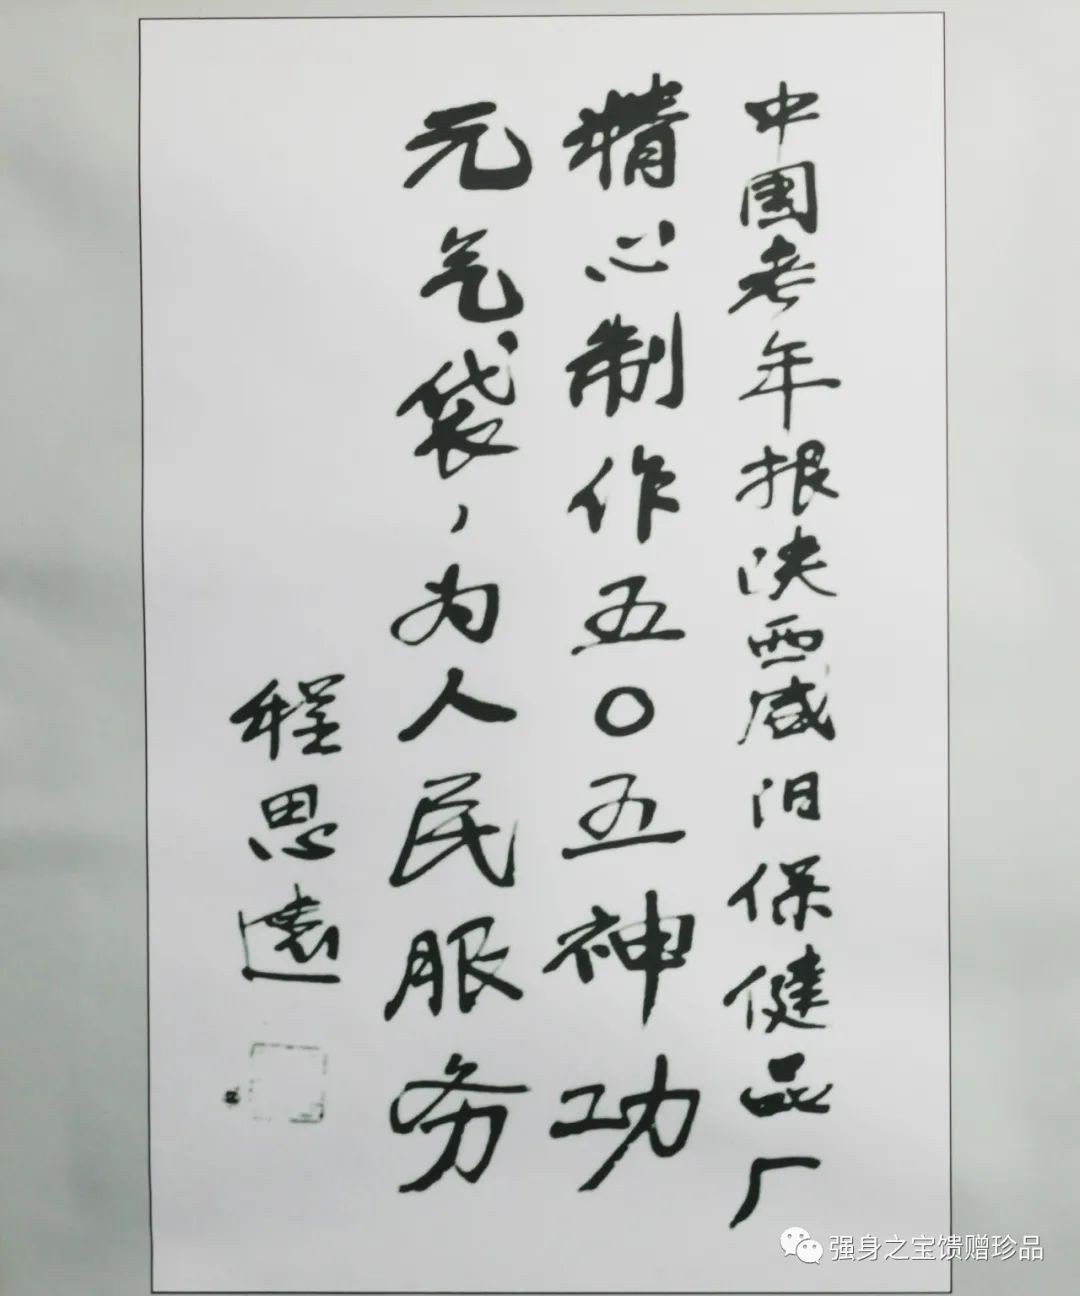 中国老年报陕西咸阳保健品厂
精心制作五〇五神功
元气袋，为人民服务
程思遠
强身之宝馈赠珍品